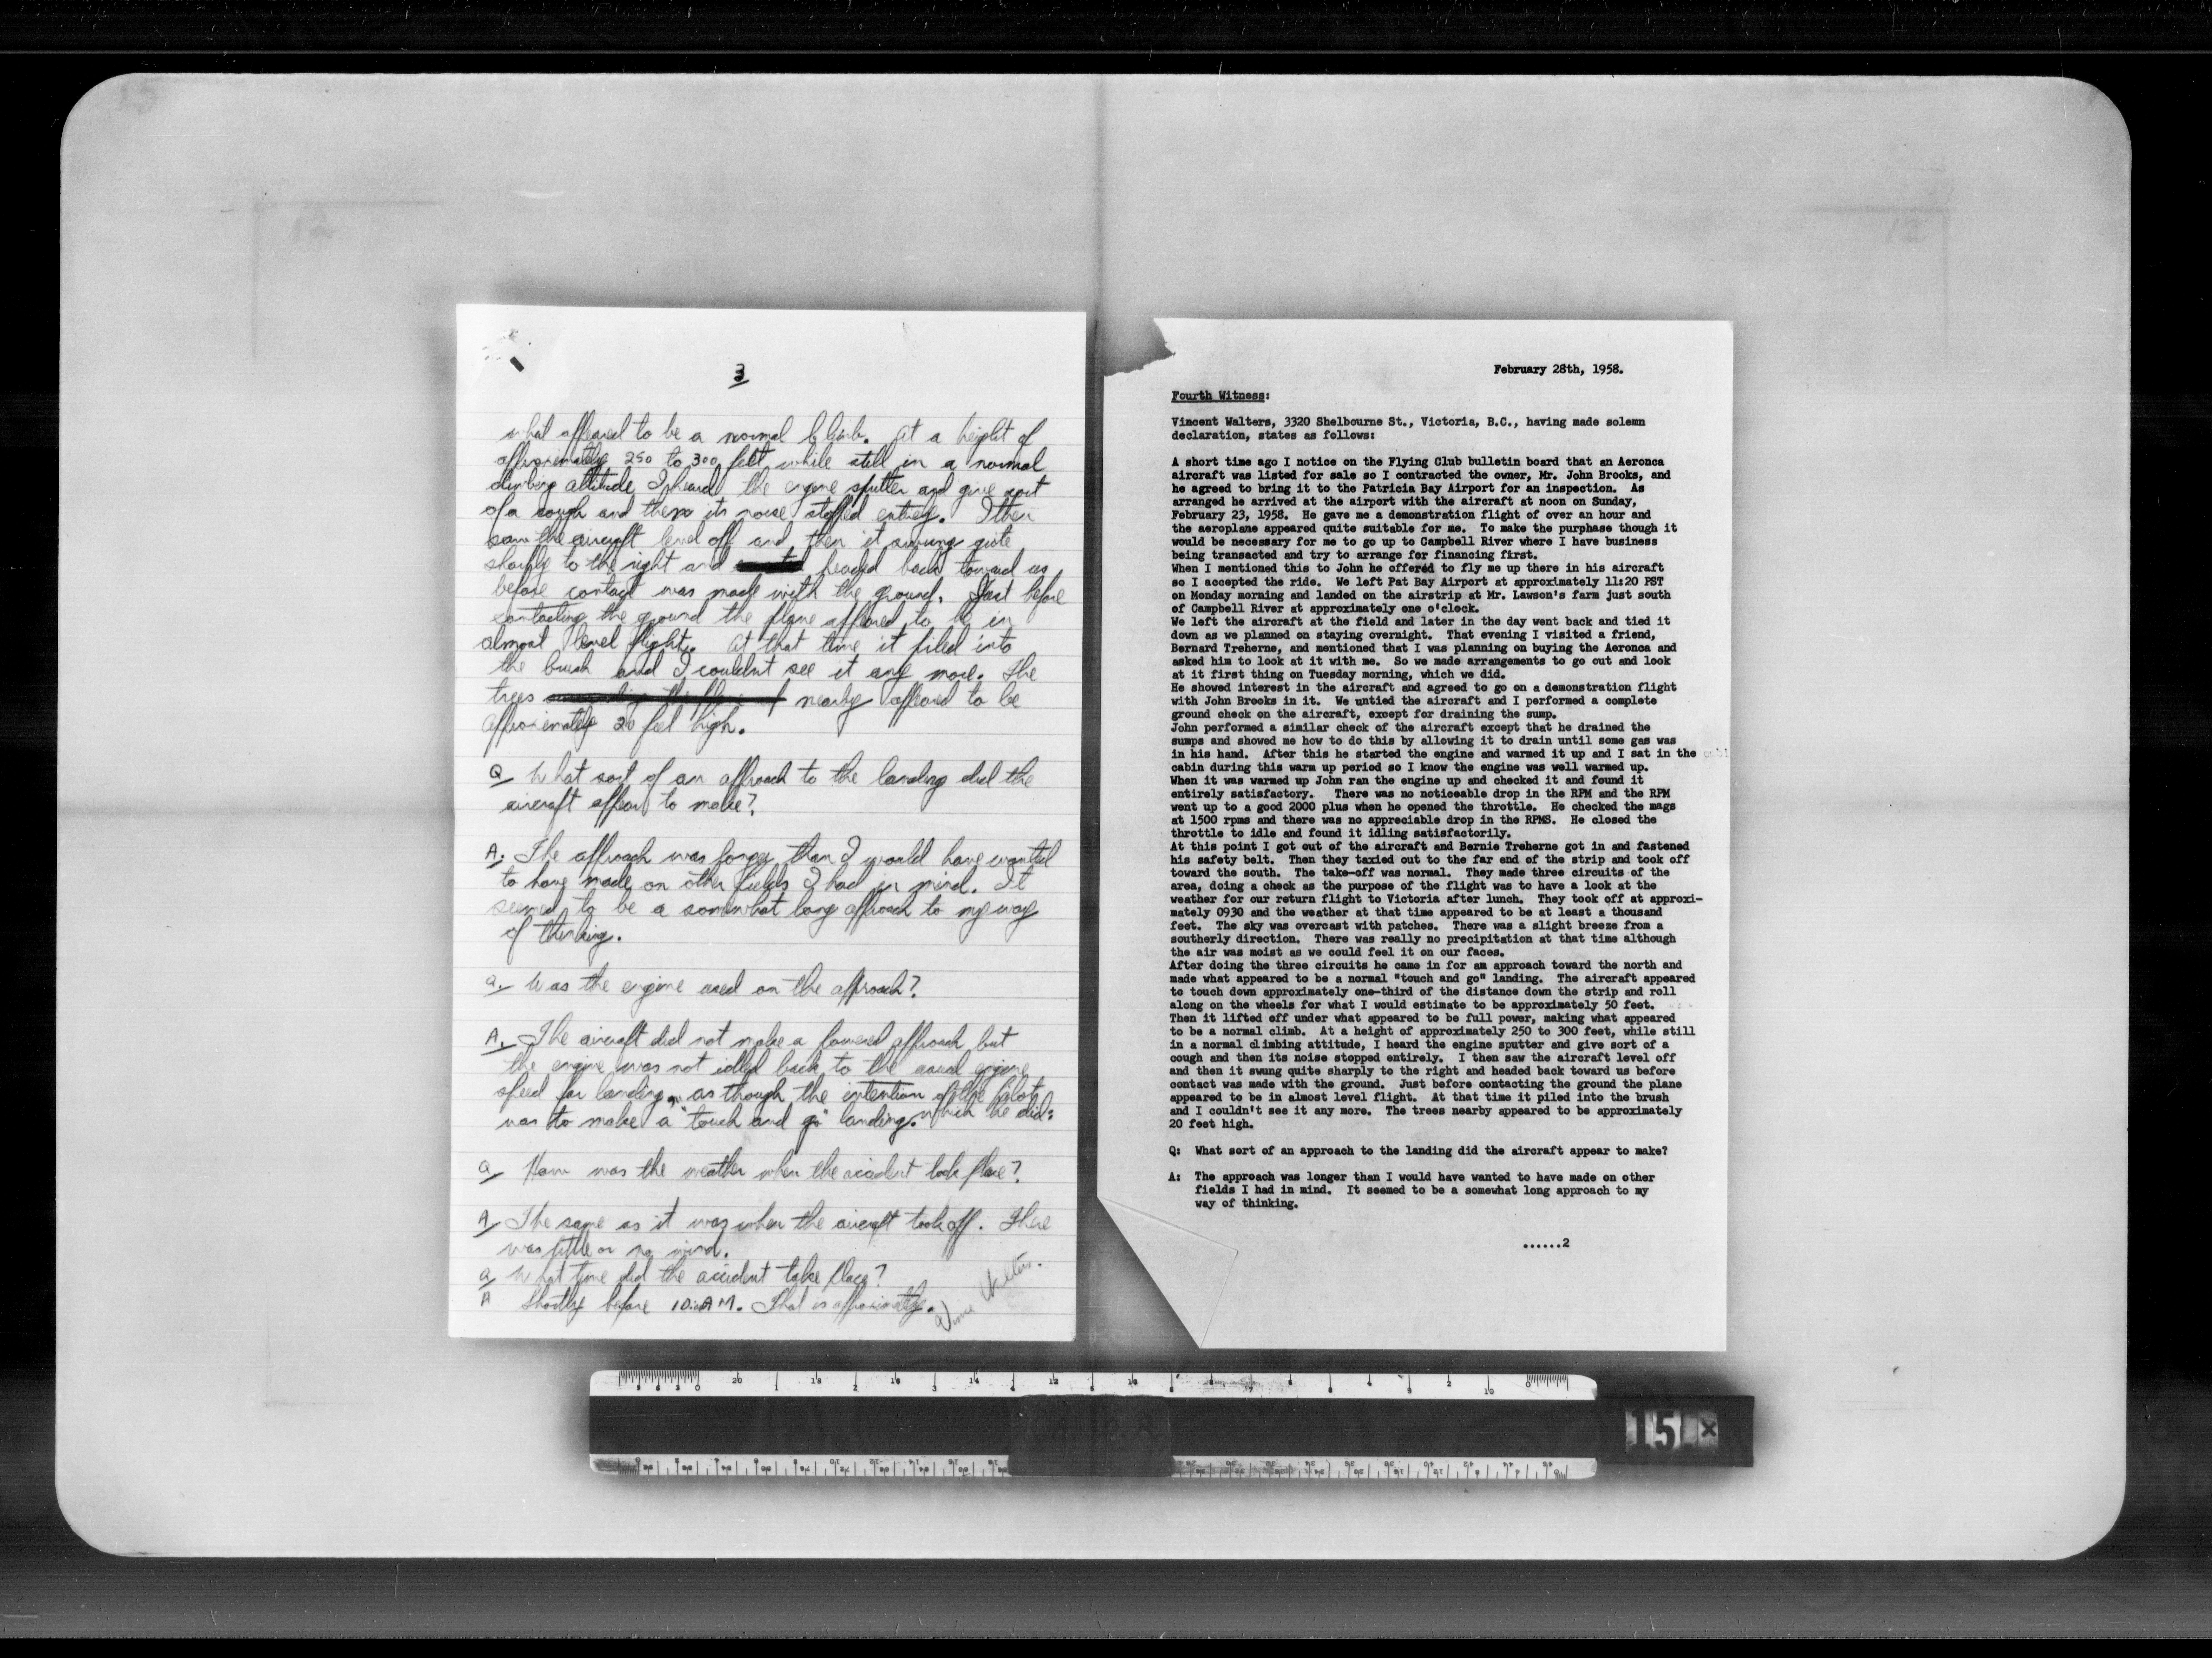 3
what appeared to be a normal climb. At a height of
approximately 250 to 300 feet while still in a normal
climbing attitude I heard the engine sputter and give sort
of a cough and then its noise stopped entirely. I then
saw the aircraft level off and then it swung quite
sharply to the right and headed back toward us
before contact was made with the ground. Just before
contacting the ground the plane appeared to be in
almost level flight. At that time it piled into
the brush and I couldnt see it any more. The
trees nearby appeared to be
approximately 20 feet high.
Q What sort of an approach to the landing did the
aircraft appear to make?
A. The approach was longer than I would have wanted
to have made on other fields I had in mind. It
seemed to be a somewhat long approach to my way
of thinking.
Q. Was the engine used on the approach?
A. The aircraft did not make a powered approach but
the engine was not idled back to the usual engine
speed for landing, as though the intention of the pilot
was to make a "touch and go" landing. which he did.
Q How was the weather when the accident took place?
A The same as it was when the aircraft took off. There
was little or no wind.
Q What time did the accident take place?
A Shortly before 10:AM. That is approximately.
Vince Walters.
February 28th, 1958.
Fourth Witness:
Vincent Walters, 3320 Shelbourne St., Victoria, B.C., having made solemn
declaration, states as follows:
A short time ago I notice on the Flying Club bulletin board that an Aeronca
aircraft was listed for sale so I contracted the owner, Mr. John Brooks, and
he agreed to bring it to the Patricia Bay Airport for an inspection. As
arranged he arrived at the airport with the aircraft at noon on Sunday,
February 23, 1958. He gave me a demonstration flight of over an hour and
the aeroplane appeared quite suitable for me. To make the purphase though it
would be necessary for me to go up to Campbell River where I have business
being transacted and try to arrange for financing first.
When I mentioned this to John he offered to fly me up there in his aircraft
so I accepted the ride. We left Pat Bay Airport at approximately 11:20 PST
on Monday morning and landed on the airstrip at Mr. Lawson's farm just south
of Campbell River at approximately one o'clock.
We left the aircraft at the field and later in the day went back and tied it
down as we planned on staying overnight. That evening I visited a friend,
Bernard Treherne, and mentioned that I was planning on buying the Aeronca and
asked him to look at it with me. So we made arrangements to go out and look
at it first thing on Tuesday morning, which we did.
He showed interest in the aircraft and agreed to go on a demonstration flight
with John Brooks in it. We untied the aircraft and I performed a complete
ground check on the aircraft, except for draining the sump.
John performed a similar check of the aircraft except that he drained the
sumps and showed me how to do this by allowing it to drain until some gas was
in his hand. After this he started the engine and warmed it up and I sat in the
cabin during this warm up period so I know the engine was well warmed up.
When it was warmed up John ran the engine up and checked it and found it
entirely satisfactory. There was no noticeable drop in the RPM and the RPM
went up to a good 2000 plus when he opened the throttle. He checked the mags
at 1500 rpms and there was no appreciable drop in the RPMS. He closed the
throttle to idle and found it idling satisfactorily.
At this point I got out of the aircraft and Bernie Treherne got in and fastened
his safety belt. Then they taxied out to the far end of the strip and took off
toward the south. The take-off was normal. They made three circuits of the
area, doing a check as the purpose of the flight was to have a look at the
weather for our return flight to Victoria after lunch. They took off at approxi-
mately 0930 and the weather at that time appeared to be at least a thousand
feet. The sky was overcast with patches. There was a slight breeze from a
southerly direction. There was really no precipitation at that time although
the air was moist as we could feel it on our faces.
After doing the three circuits he came in for an approach toward the north and
made what appeared to be a normal "touch and go" landing. The aircraft appeared
to touch down approximately one-third of the distance down the strip and roll
along on the wheels for what I would estimate to be approximately 50 feet.
Then it lifted off under what appeared to be full power, making what appeared
to be a normal climb. At a height of approximately 250 to 300 feet, while still
in a normal climbing attitude, I heard the engine sputter and give sort of a
cough and then its noise stopped entirely. I then saw the aircraft level off
and then it swung quite sharply to the right and headed back toward us before
contact was made with the ground. Just before contacting the ground the plane
appeared to be in almost level flight. At that time it piled into the brush
and I couldn't see it any more. The trees nearby appeared to be approximately
20 feet high.
Q: What sort of an approach to the landing did the aircraft appear to make?
A: The approach was longer than I would have wanted to have made on other
fields I had in mind. It seemed to be a somewhat long approach to my
way of thinking.
......2
15 x